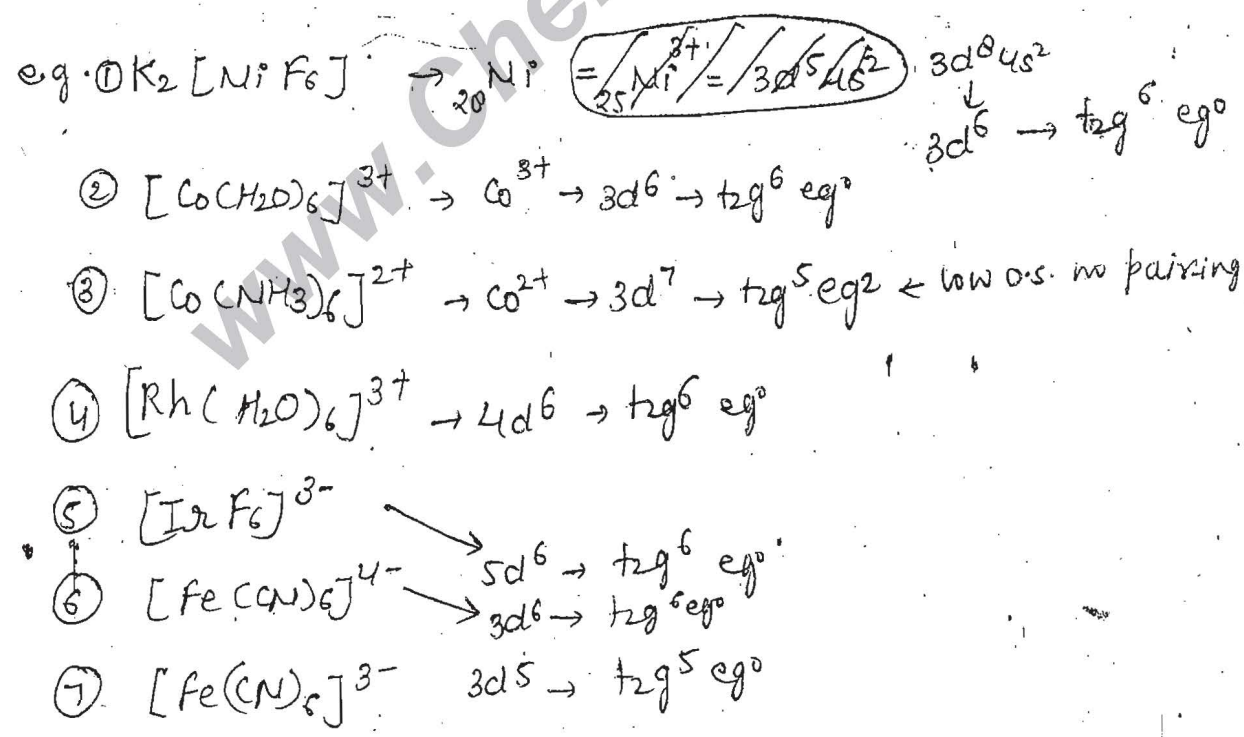 e.g. ① K2 [Ni F6] → 28Ni = 25Ni3+ = 3d5 4s2 3d8 4s2
↓
3d6 → t2g6 eg0
② [Co(H2O)6]3+ → Co3+ → 3d6 → t2g6 eg0
③ [Co(NH3)6]2+ → Co2+ → 3d7 → t2g5 eg2 ← low o.s. no pairing
④ [Rh(H2O)6]3+ → 4d6 → t2g6 eg0
⑤ [Ir F6]3- → 5d6 → t2g6 eg0
⑥ [Fe(CN)6]4- → 3d6 → t2g6 eg0
⑦ [Fe(CN)6]3- 3d5 → t2g5 eg0
www.Che